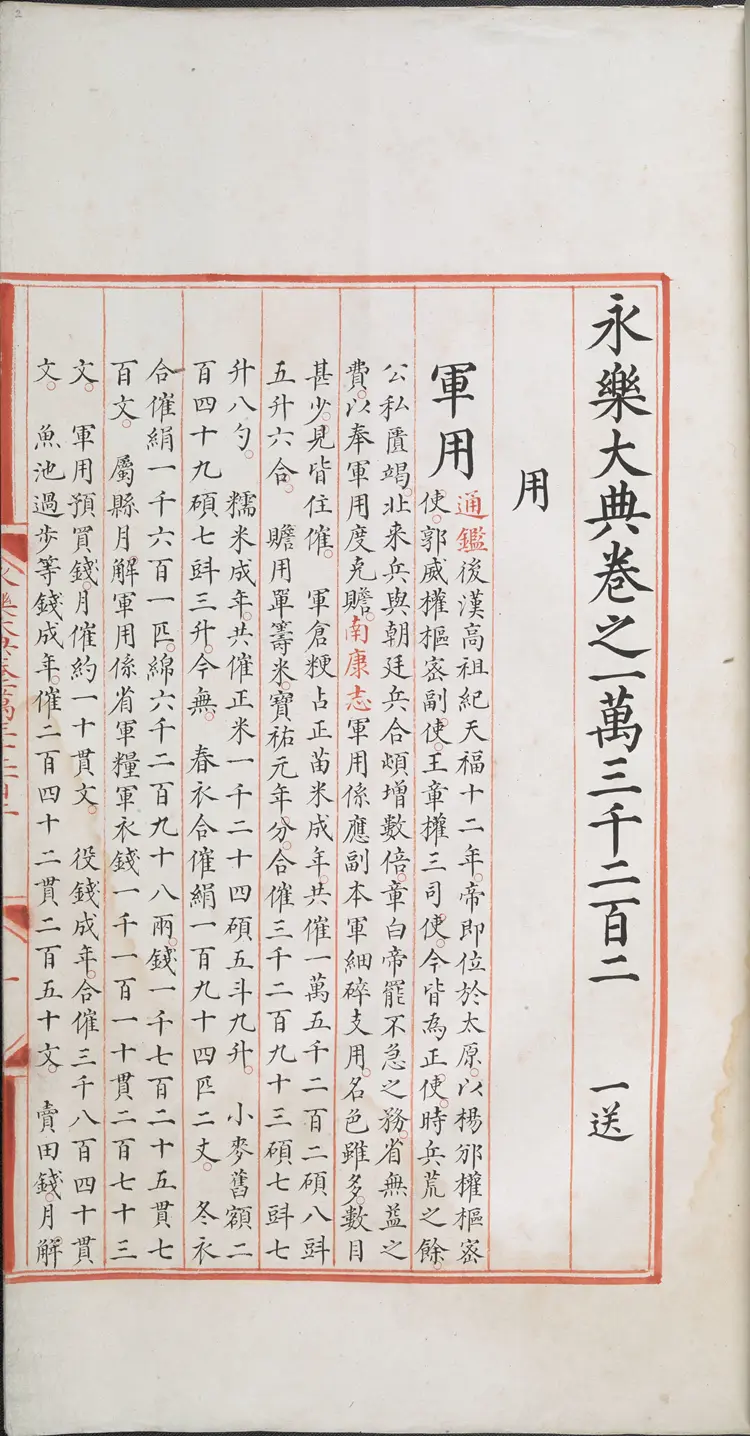 永樂大典卷之一萬三千二百二 一送
用
軍用
通鑑後漢高祖紀天福十二年。帝即位於太原。以楊邠權樞密
使。郭威權樞密副使。王章權三司使。今皆為正使。時兵荒之餘。
公私匱竭。北来兵與朝廷兵合頓增數倍。章白帝罷不急之務。省無益之
費。以奉軍用度克贍。南康志軍用係應副本軍細碎支用。名色雖多。數目
甚少。見皆住催。 軍倉粳占正苗米成年。共催一萬五千二百二碩八㪷
五升六合。 贍用單籌米。寶祐元年分。合催三千二百九十三碩七㪷七
升八勺。 糯米成年。共催正米一千二十四碩五斗九升。 小麥舊額二
百四十九碩七㪷三升。今無。 春衣合催絹一百九十四匹二丈。 冬衣
合催絹一千六百一匹。綿六千二百九十八兩。錢一千七百二十五貫七
百文。 屬縣月解軍用係省軍糧軍衣錢一千一百一十貫二百七十三
文。 軍用預買錢。月催約一十貫文。 役錢成年。合催三千八百四十貫
文。 魚池過步等錢成年。催二百四十二貫二百五十文。 賣田錢。月解